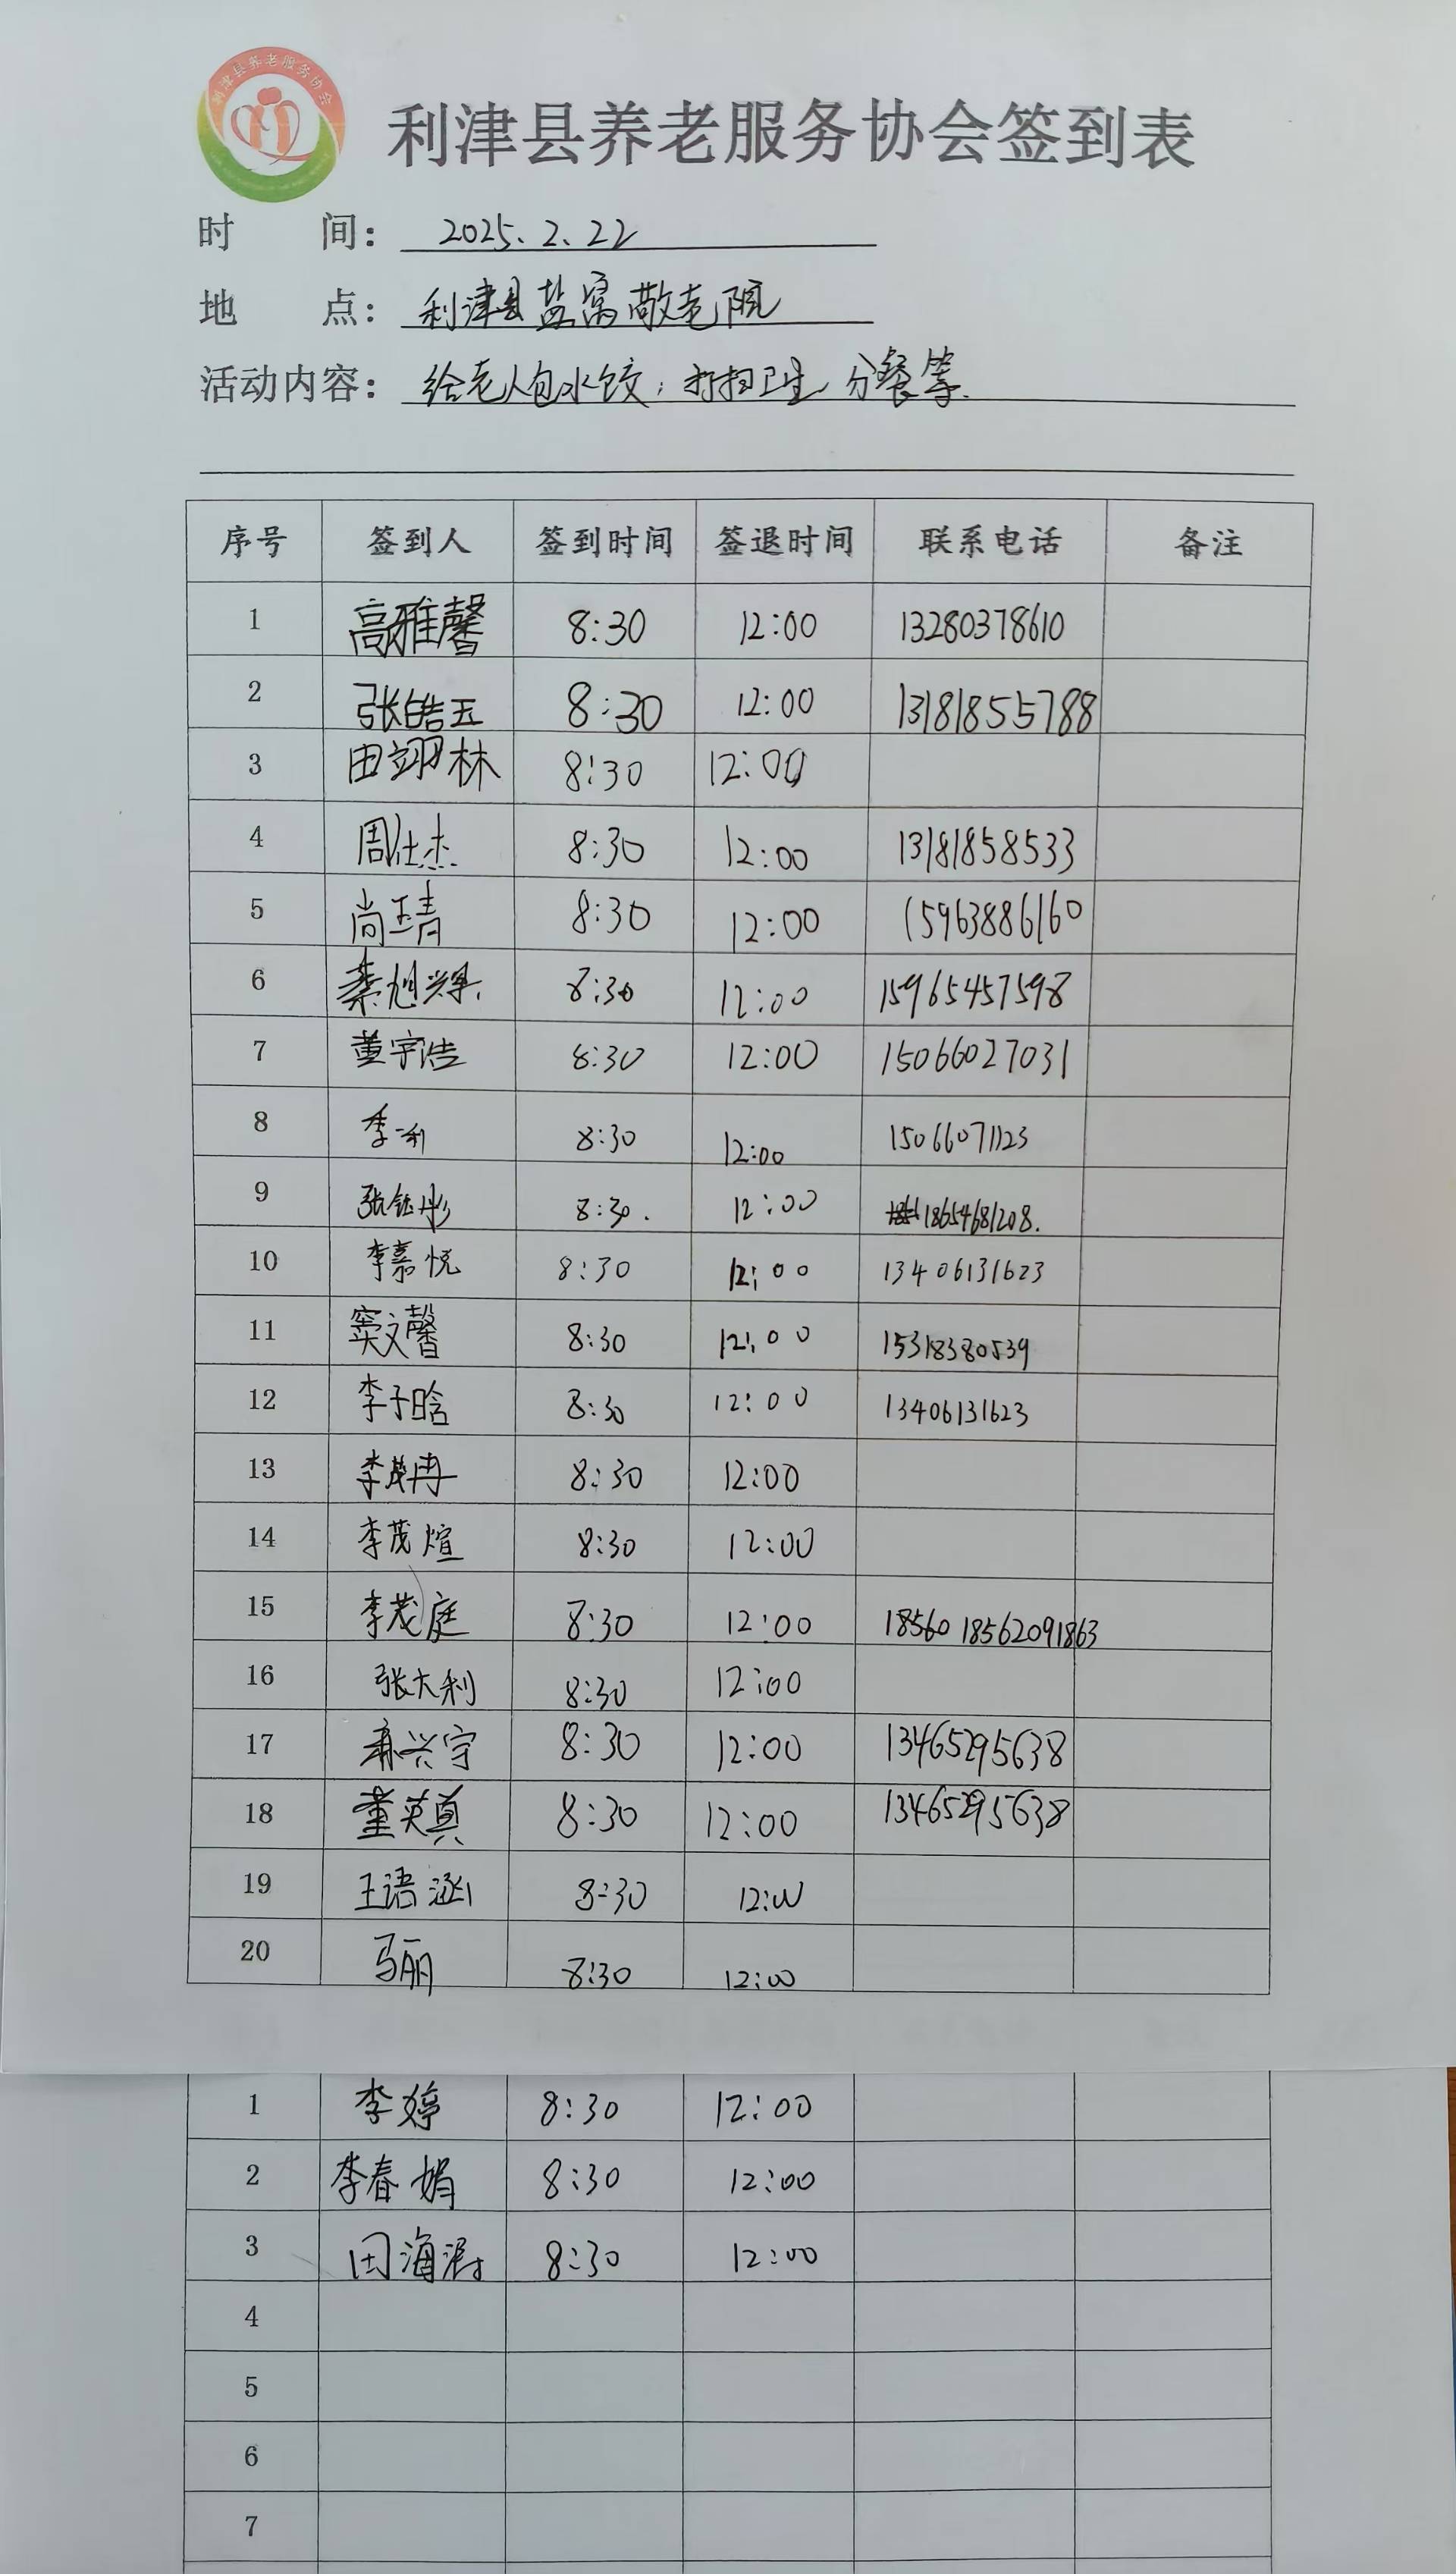 利津县养老服务协会
利津县养老服务协会签到表
时 间： 2025.2.22
地 点： 利津县盐窝敬老院
活动内容： 给老人包水饺，打扫卫生 分餐等.
序号 签到人 签到时间 签退时间 联系电话 备注
1 高雅馨 8:30 12:00 13280378610
2 张皓玉 8:30 12:00 13181855788
3 田翊林 8:30 12:00
4 周仕杰 8:30 12:00 13181858533
5 尚玉青 8:30 12:00 15963886160
6 綦旭兴 8:30 12:00 15965457598
7 董宇浩 8:30 12:00 15066027031
8 季利 8:30 12:00 15066071123
9 张钰彤 8:30. 12:00 18654681208.
10 李嘉悦 8:30 12:00 13406131623
11 窦文馨 8:30 12:00 15318380539
12 李子晗 8:30 12:00 13406131623
13 李茂冉 8:30 12:00
14 李茂煊 8:30 12:00
15 李茂庭 8:30 12:00 18560 18562091863
16 张大利 8:30 12:00
17 兴宇 8:30 12:00 13465295638
18 董英真 8:30 12:00 13465295638
19 王语涵 8:30 12:00
20 马丽 8:30 12:00
1 李婷 8:30 12:00
2 李春娟 8:30 12:00
3 田海涛 8:30 12:00
4
5
6
7